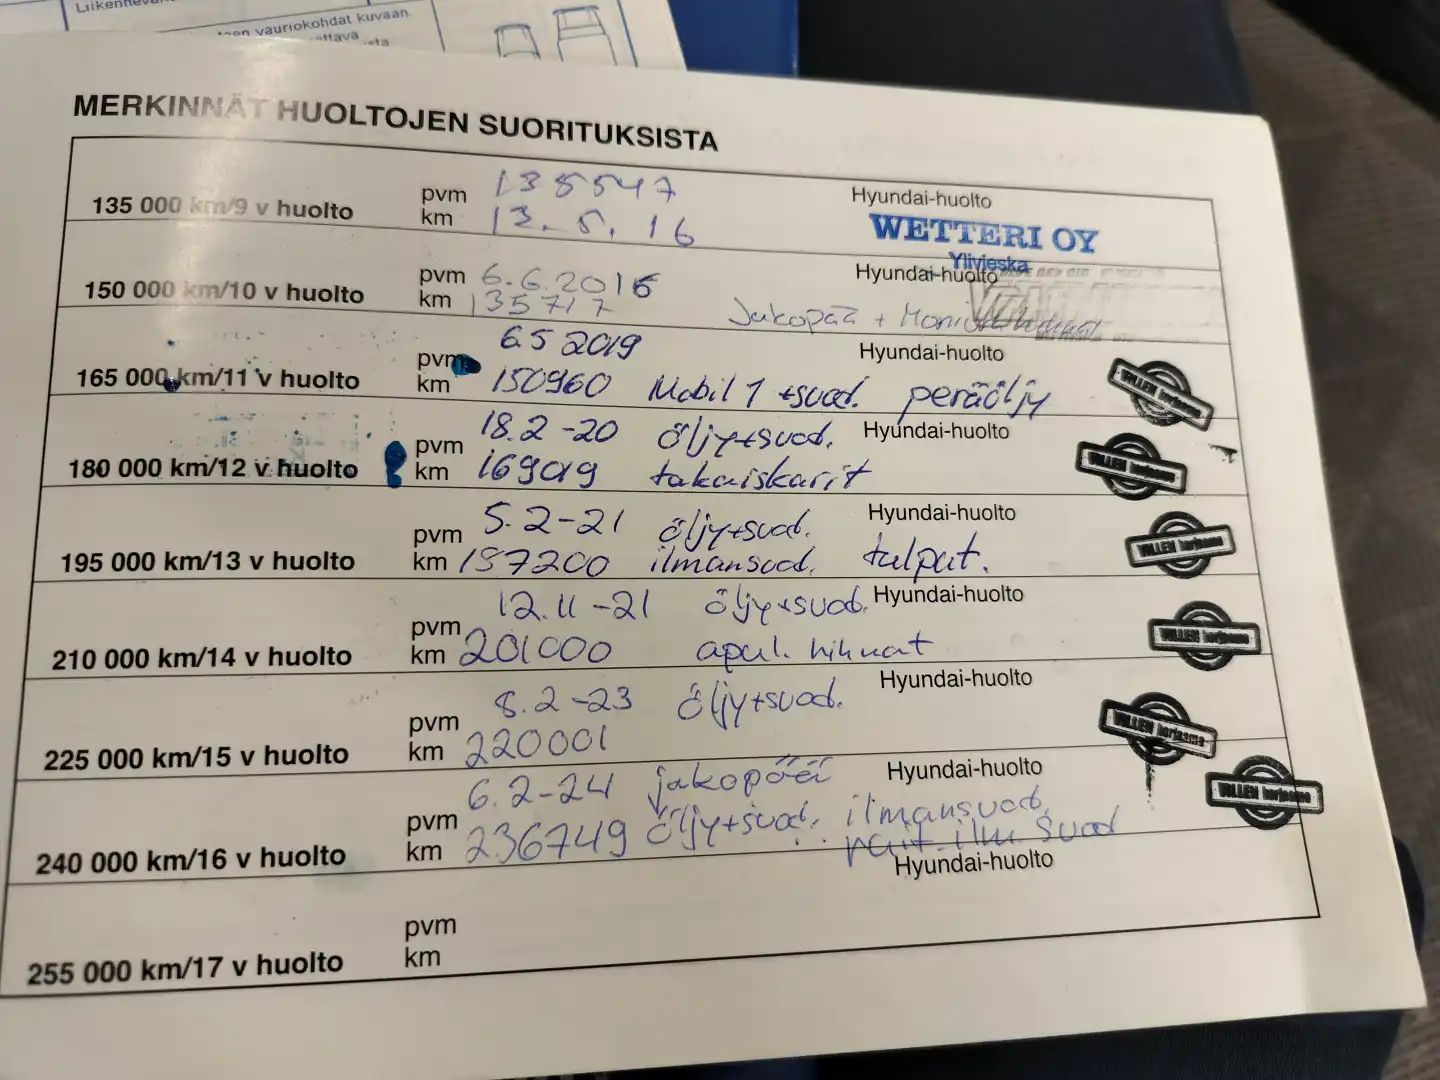 Liikenneva
vauriokohdat kuvaan
MERKINNÄT HUOLTOJEN SUORITUKSISTA
135 000 km/9 v huolto pvm 135547 Hyundai-huolto
km 13.5.16 WETTERI OY
Ylivieska
150 000 km/10 v huolto pvm 6.6.2016 Hyundai-huolto
km 135717 Jakopää +
165 000 km/11 v huolto pvm 6.5 2019 Hyundai-huolto
km 150960 Mobil 1 +suod. peräöljy WILLEN korjaamo
180 000 km/12 v huolto pvm 18.2-20 öljy+suod. Hyundai-huolto
km 169019 takaiskarit WILLEN korjaamo
195 000 km/13 v huolto pvm 5.2-21 öljy+suod. Hyundai-huolto
km 187200 ilmansuod. tulpat. WILLEN korjaamo
210 000 km/14 v huolto pvm 12.11-21 öljy+suod. Hyundai-huolto
km 201000 apul. hihnat WILLEN korjaamo
225 000 km/15 v huolto pvm 8.2-23 öljy+suod. Hyundai-huolto
km 220001 WILLEN korjaamo
240 000 km/16 v huolto pvm 6.2-24 jakopää Hyundai-huolto
km 236749 öljy+suod. ilmansuod. WILLEN korjaamo
rait.ilm suod
255 000 km/17 v huolto pvm Hyundai-huolto
km